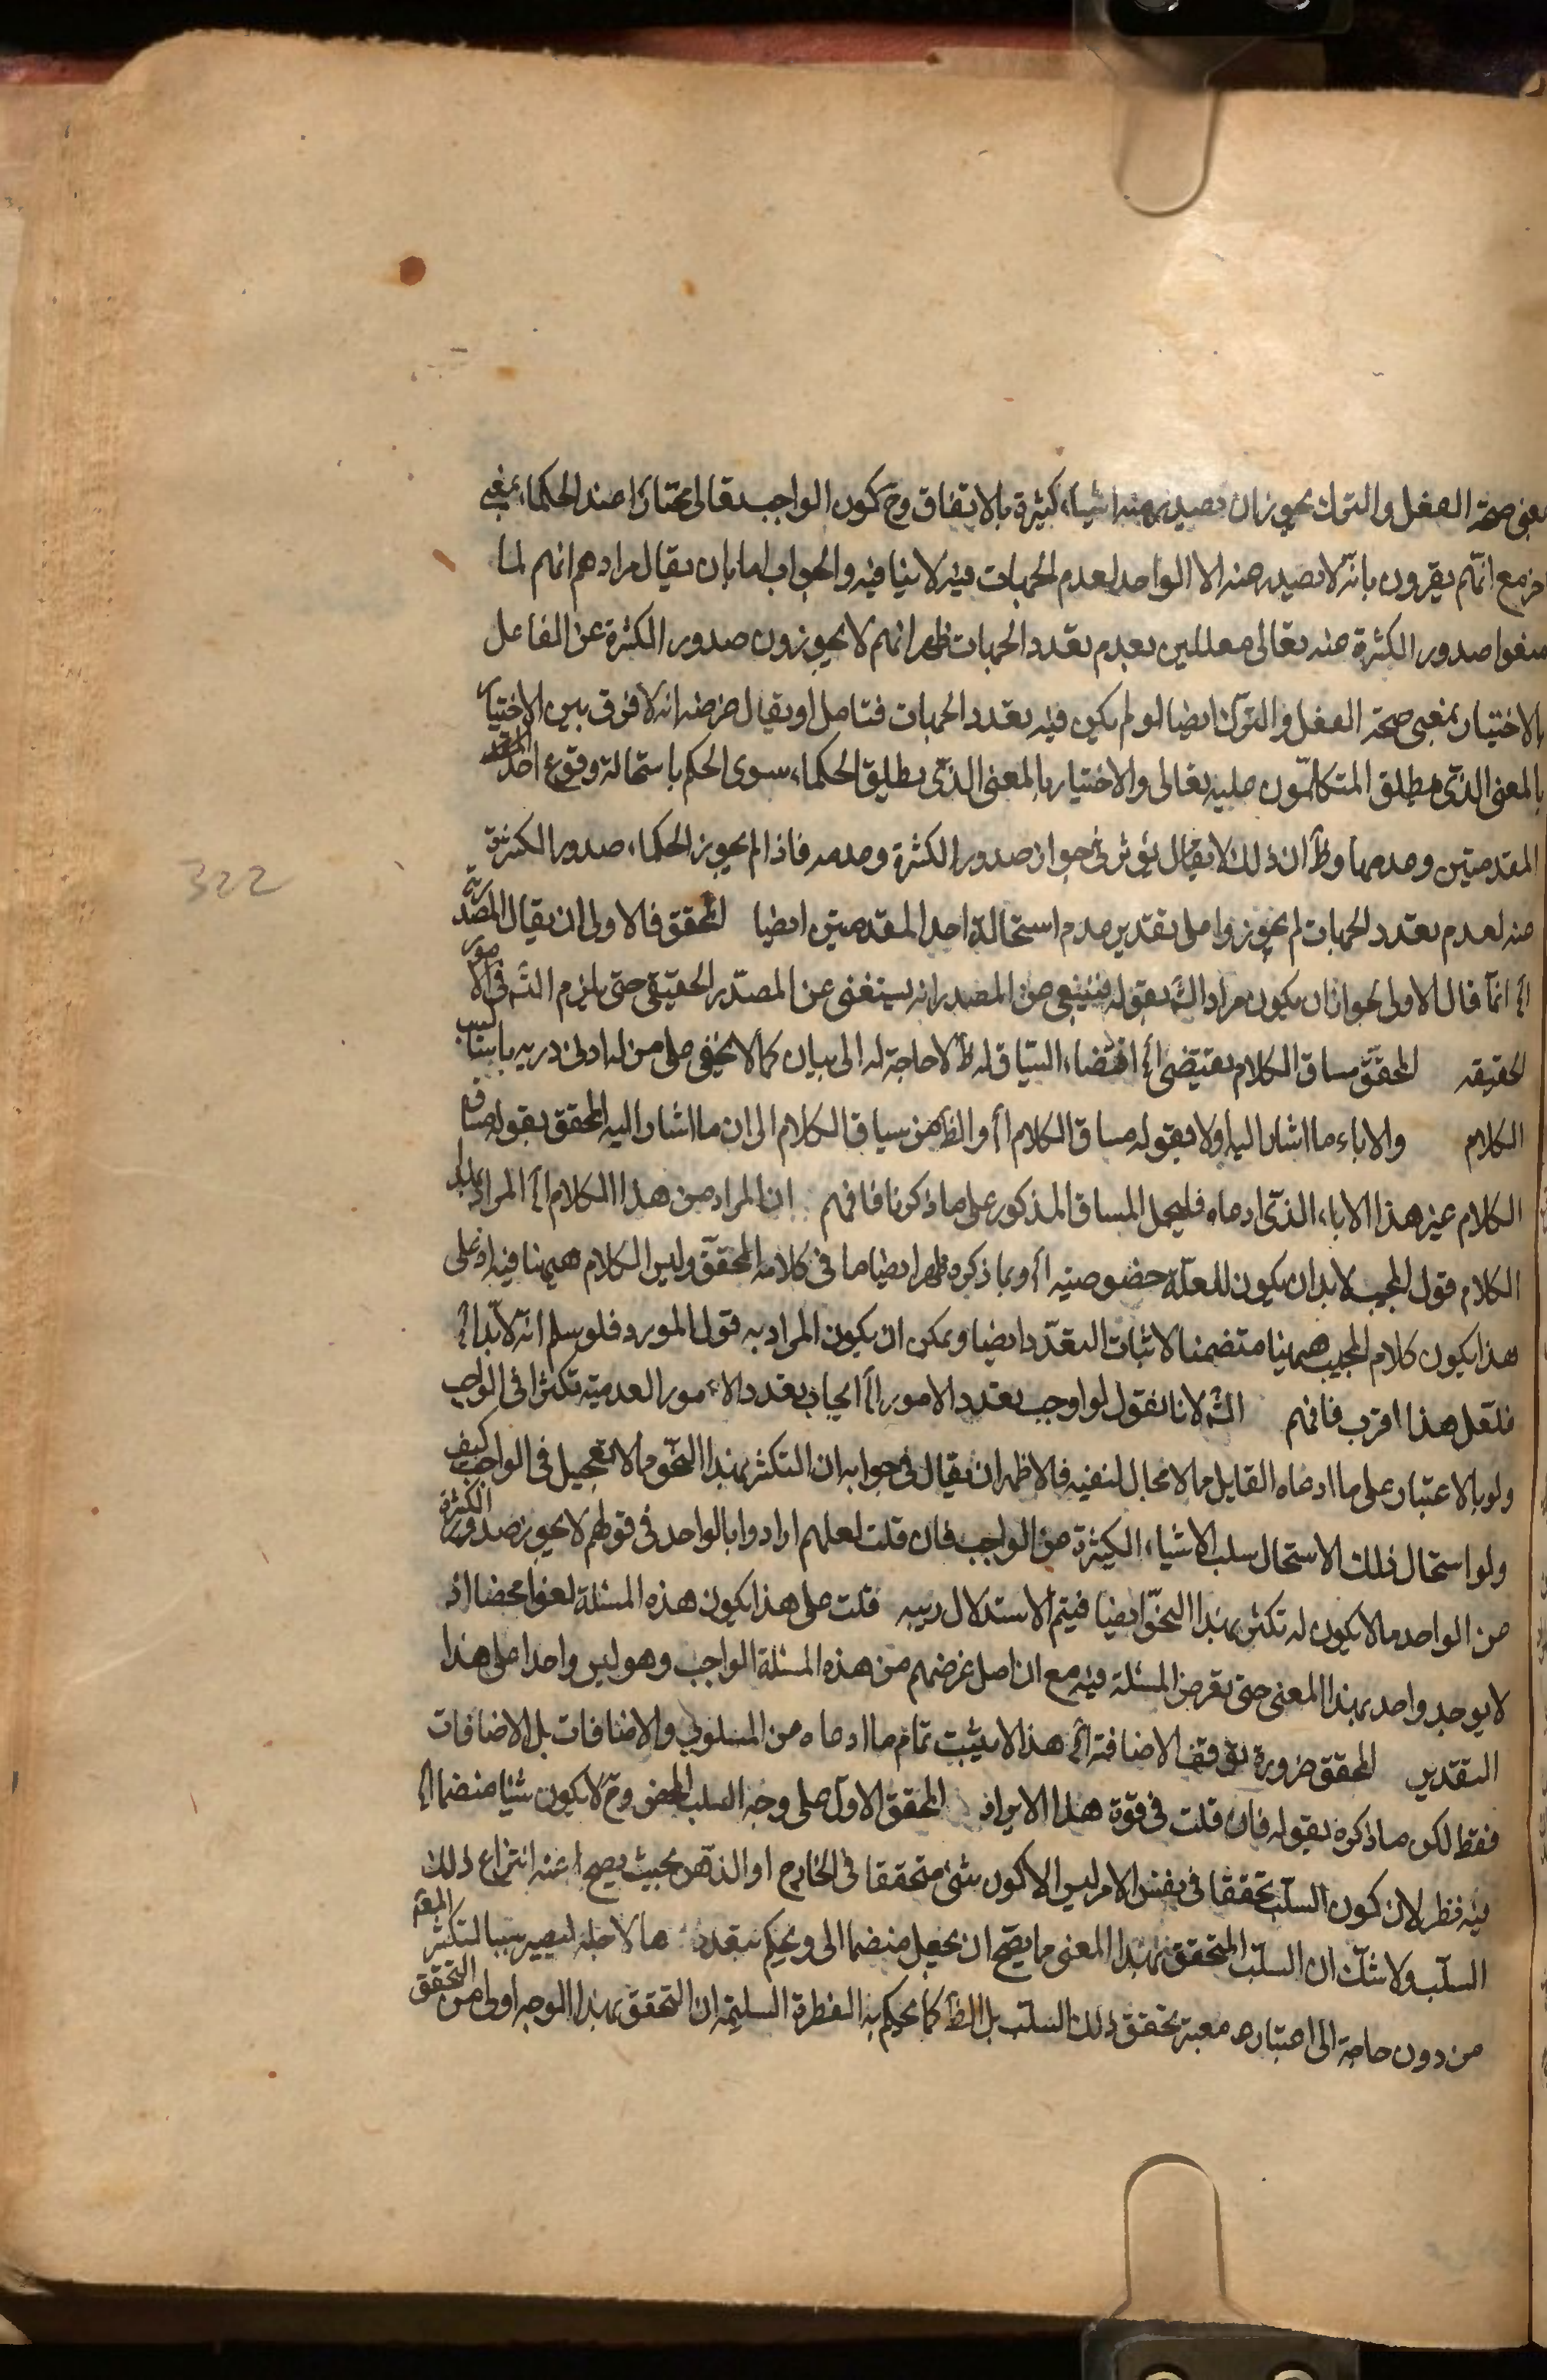 بمعنى صحة الفعل والترك يجوز ان يصدر عنه اشياء كثيرة بالاتفاق وح كون الواجب تعالى مختارا عند الحكماء بمعنى
اخر مع انهم يقرون بانه لا يصدر عنه الا الواحد لعدم الجهات فيه لا ينافيه والجواب اما بان يقال مرادهم انهم لما
منعوا صدور الكثرة عنه تعالى معللين بعدم تعدد الجهات ظهر انهم لا يجوزون صدور الكثرة عن الفاعل
بالاختيار بمعنى صحة الفعل والترك ايضا لو لم يكن فيه تعدد الجهات فتامل او يقال غرضه انه لا فرق بين الاختيار
بالمعنى الذى يطلق المتكلمون عليه تعالى والاختيار بالمعنى الذى يطلق الحكماء سوى الحكم باستحالة وقوع احد
المقدمتين وعدمها وظ ان ذلك لا يقال يؤثر فى جواز صدور الكثرة وعدمه فاذا لم يجوز الحكماء صدور الكثرة
عنه لعدم تعدد الجهات لم يجوزوا على تقدير عدم استحالة احد المقدمتين ايضا المحقق فالاولى ان يقال المصدرية
اه انما قال الاولى لجواز ان يكون مراد الش بقوله فينبغى من المصدر انه يستغنى عن المصدر الحقيقى حتى يلزم الش فى الامور
الحقيقه المحقق مساق الكلام يقتضى اه اقتضاء السياق له ظ لا حاجة له الى بيان كما لا يخفى على من له ادنى دربه باساليب
الكلام والاباء ما اشار اليه اولا بقوله مساق الكلام اه والظ من سياق الكلام الى ان ما اشار اليه المحقق بقوله مساق
الكلام غير هذا الاباء الذى ادعاه فليحمل المساق المذكور على ما ذكرنا فافهم ان المراد من هذا الكلام اه المراد بهذا
الكلام قول المجيب لا بد ان يكون للعلة خصوصية اه وبما ذكره ظهر ايضا ما فى كلامه المحقق وليس الكلام ههنا فيه اذ على
هذا يكون كلام المجيب ههنا متضمنا لاثبات التعدد ايضا ويمكن ان يكون المراد به قول المورد فلو سلم انه لا بد اه
فلعل هذا اقرب فافهم الش لانا نقول لو اوجب تعدد الامور اه ايجاب تعدد الامور العدمية تكثرا فى الواجب
ولو بالاعتبار على ما ادعاه القايل مما لا مجال لنفيه فالاظهر ان يقال فى جوابه ان التكثر بهذا النحو مما لا يستحيل فى الواجب كيف
ولو استحال ذلك لاستحال سلب الاشياء الكثيرة عن الواجب فان قلت لعلهم ارادوا بالواحد فى قولهم لا يجوز صدور الكثرة
من الواحد ما لا يكون له تكثر بهذا النحو ايضا فيتم الاستدلال ربيه قلت على هذا يكون هذه المسئلة لغوا محضا اذ
لا يوجد واحد بهذا المعنى حتى يفرض المسئلة فيه مع ان اصل غرضهم من هذه المسئلة الواجب وهو ليس واحدا على هذا
التقدير المحقق ضرورة توقف الاضافة اه هذا لا يثبت تمام ما ادعاه من السلوب والاضافات بل الاضافات
فقط لكن ما ذكره بقوله فان قلت فى قوة هذا الايراد المحقق الاول على وجه السلب المحض وح لا يكون شيئا منضما اه
فيه نظر لان كون السلب تحققا فى نفس الامر ليس الا كون شئ متحققا فى الخارج او الذهن بحيث يصح عنه انتزاع ذلك
السلب ولا شك ان السلب المتحقق بهذا المعنى مما يصح ان يجعل منضما الى ويحكم بتعدد ها لاجله ليصير سببا لتكثر
من دون حاجة الى اعتباره معية تحقق ذلك السلب بل الظ كما يحكم به الفطرة السليمة ان التحقق بهذا الوجه اولى من التحقق
322